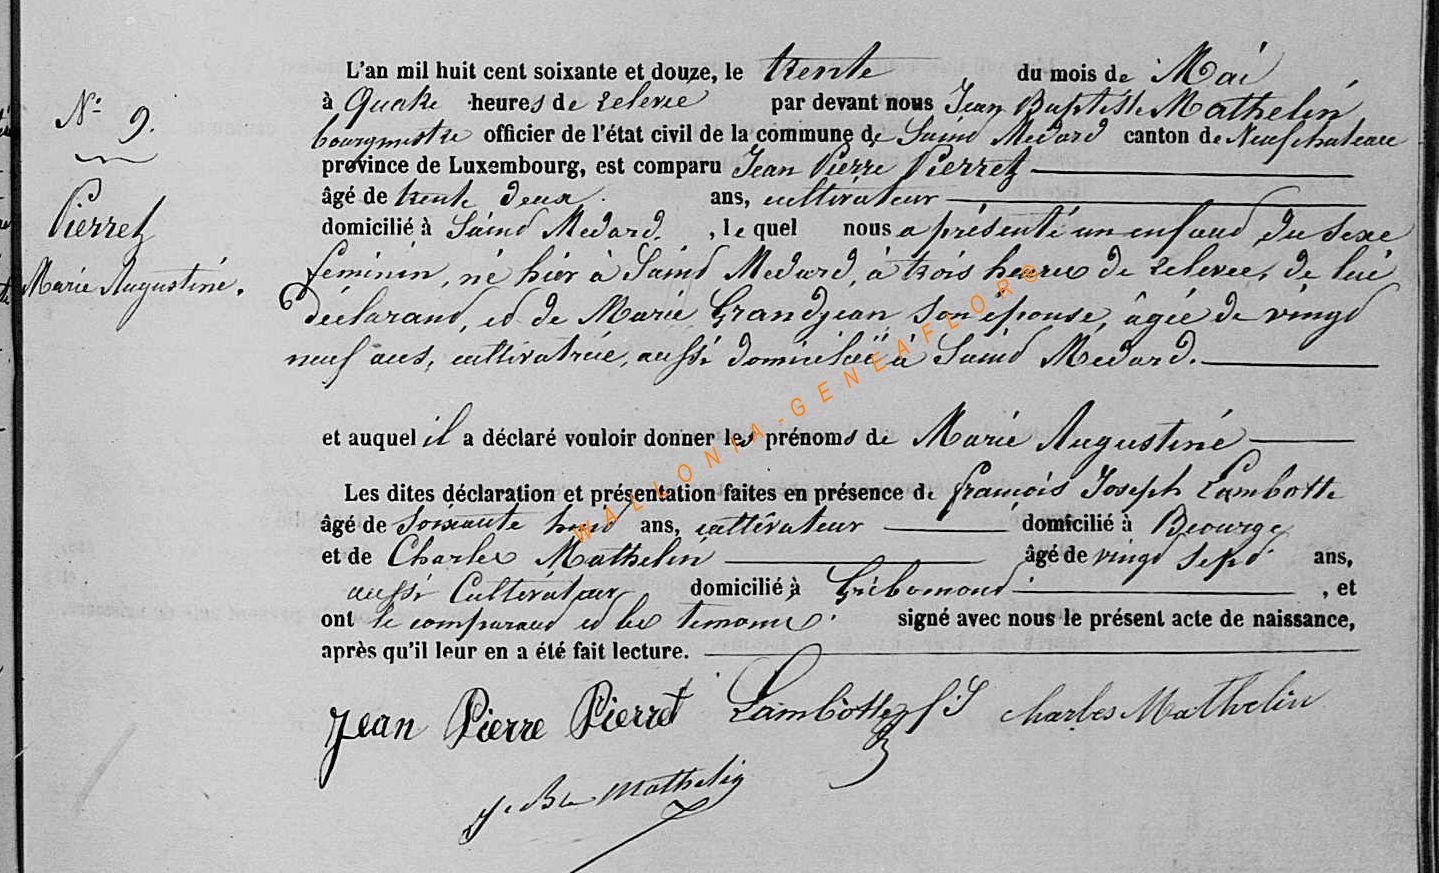 N° 9.
Pierret
Marie Augustine.
L'an mil huit cent soixante et douze, le trente du mois de Mai
à Quatre heures de relevée par devant nous Jean Baptiste Mathelin
bourgmestre officier de l'état civil de la commune de Saind Medard canton de Neufchateau
province de Luxembourg, est comparu Jean Pierre Pierret
âgé de trente deux ans, cultivateur
domicilié à Saind Medard, lequel nous a présenté un enfand du sexe
féminin, né hier à Saind Medard, à trois heures de relevée, de lui
déclarand, ed de Marie Grandjean son épouse, âgée de vingd
neuf ans, cultivatrice, aussi domiciliée à Saind Medard.
et auquel il a déclaré vouloir donner les prénoms de Marie Augustine
Les dites déclaration et présentation faites en présence de françois Joseph Lambotte
âgé de soixante ans, cultivateur domicilié à
et de Charles Mathelin âgé de vingd sepd ans,
aussi Cultivateur domicilié à Gribomond, et
ont le comparand ed les temoins signé avec nous le présent acte de naissance,
après qu'il leur en a été fait lecture.
Jean Pierre Pierret Lambotte f J Charles Mathelin
J. Bte Mathelin
WALLONIA-GENEAFLOR®